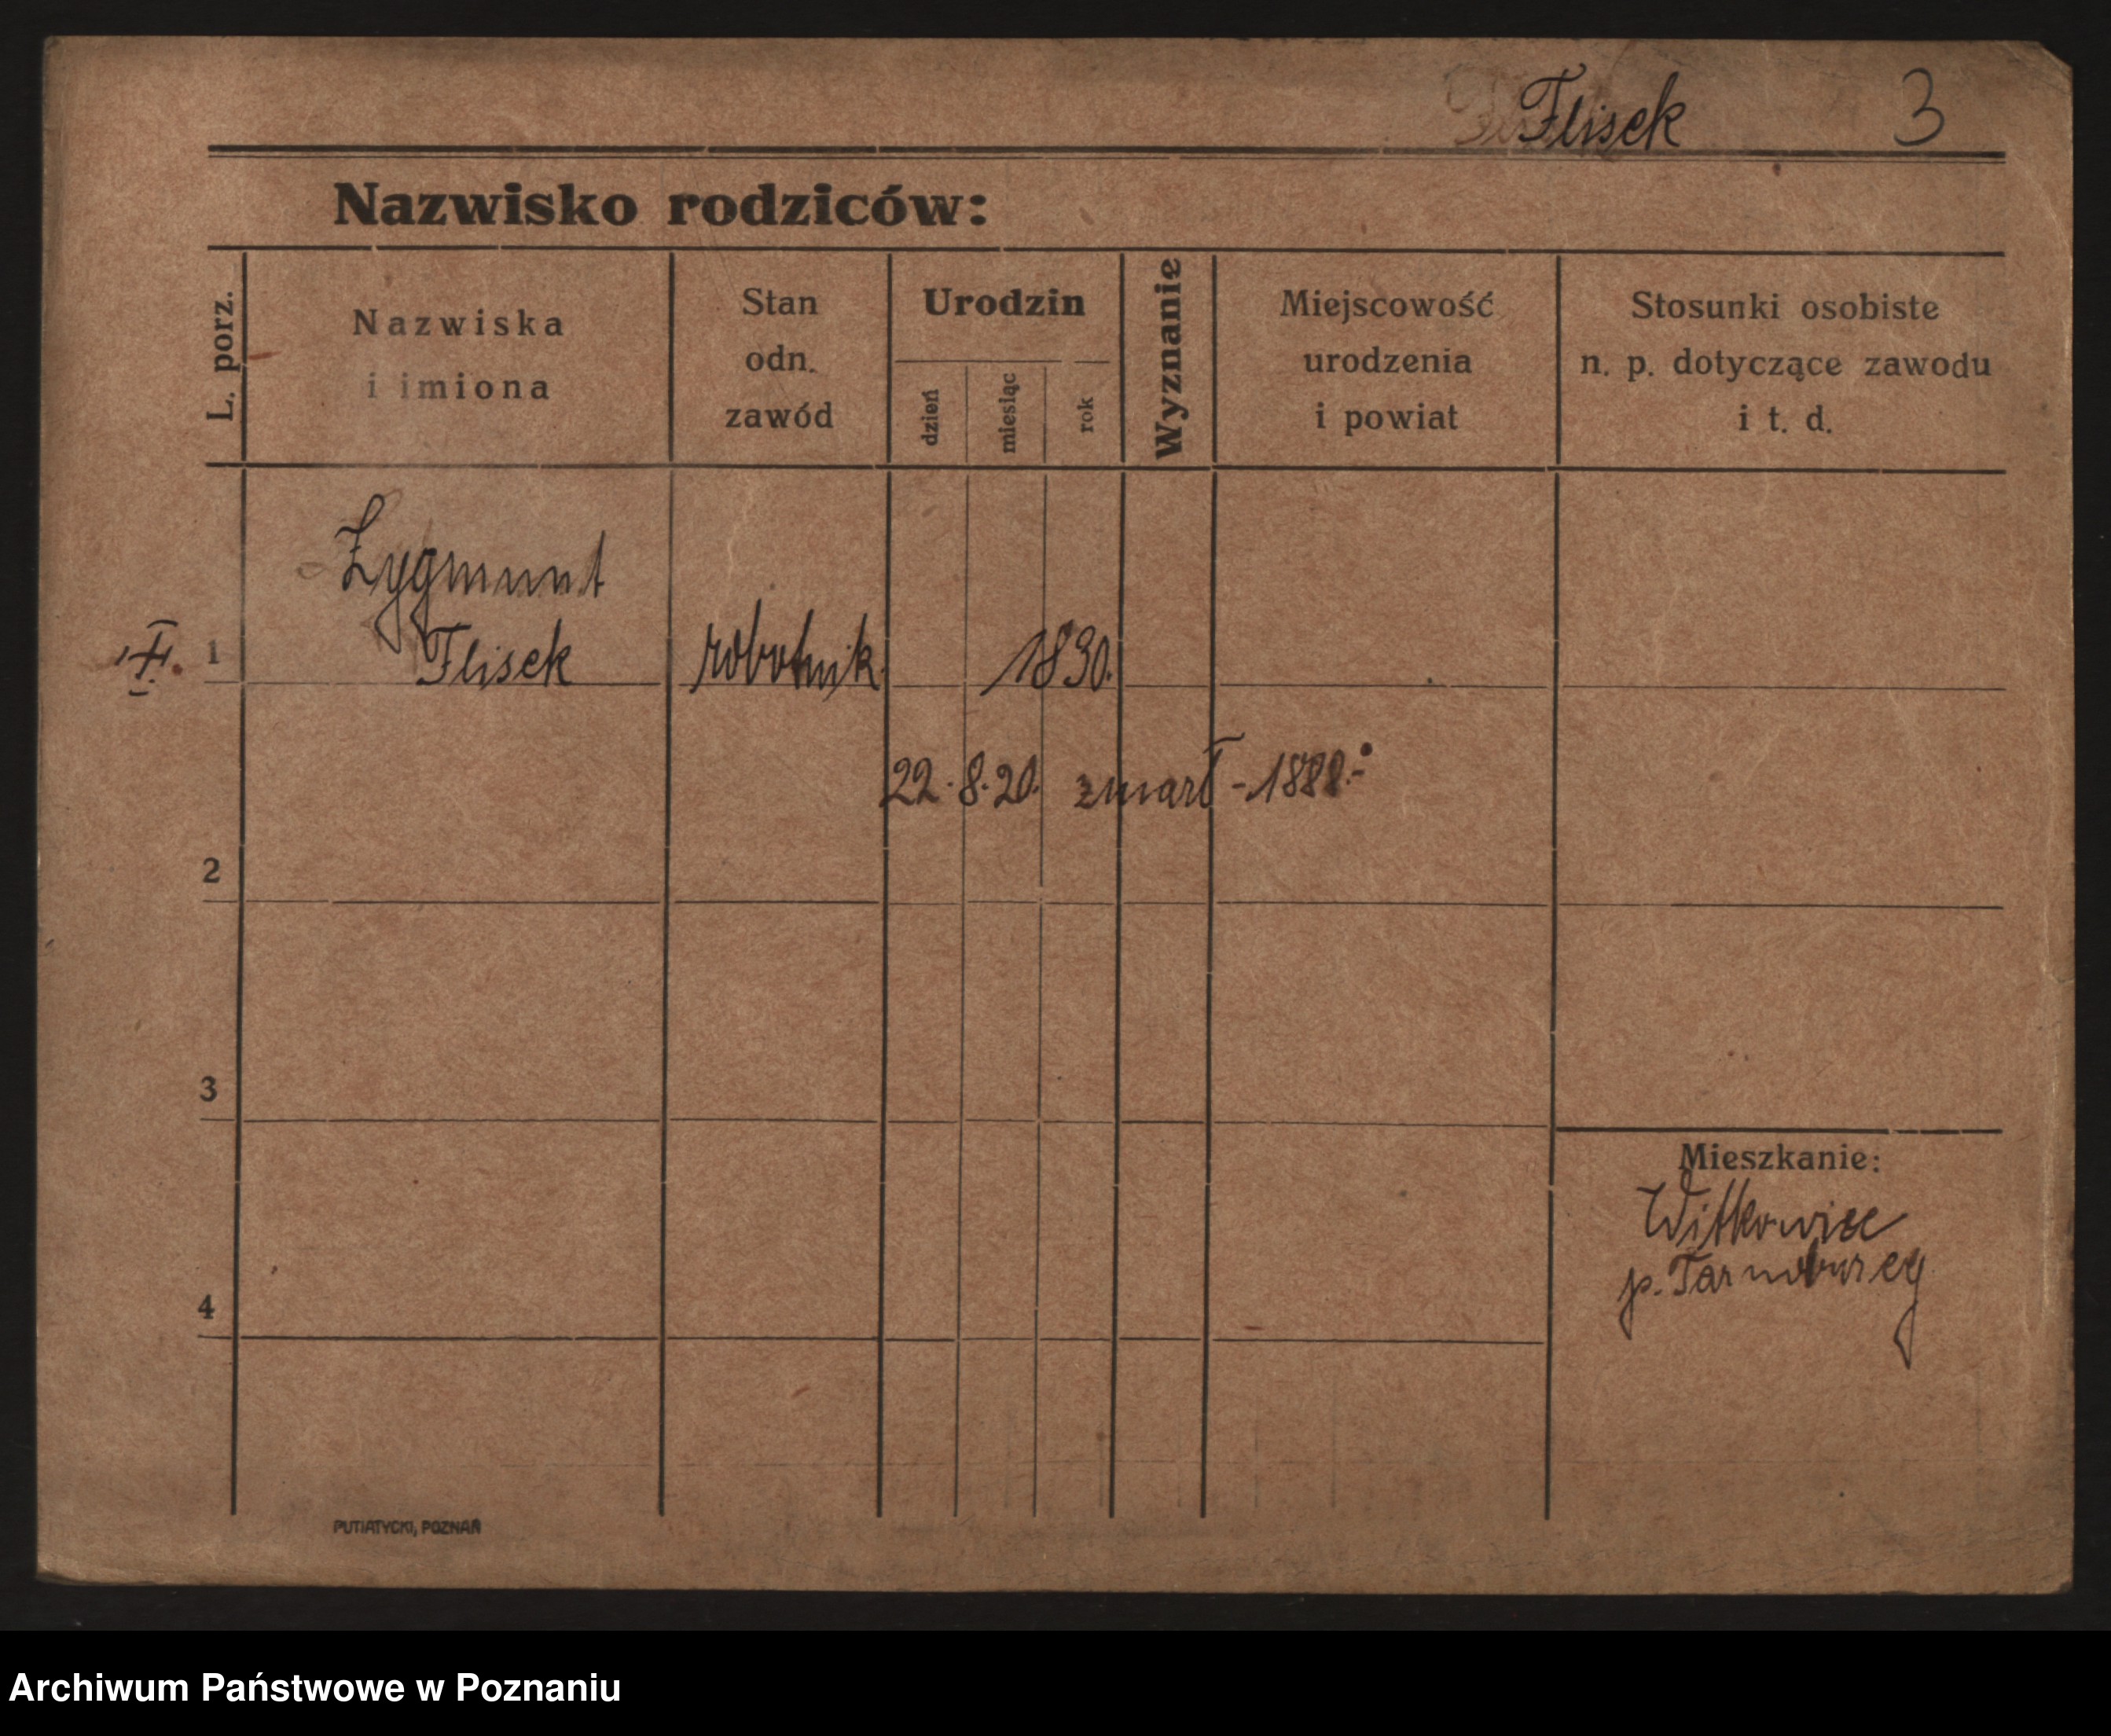 Flisek 3
Nazwisko rodziców:
L. porz.
Nazwiska
i imiona
Stan
odn.
zawód
Urodzin
dzień
miesiąc
rok
Wyznanie
Miejscowość
urodzenia
i powiat
Stosunki osobiste
n. p. dotyczące zawodu
i t. d.
Zygmunt
1 Flisek robotnik 1830.
22.8.20. zmarł - 1888.-
2
3
Mieszkanie:
Witkowice
p. Tarnobrzeg
4
PUTIATYCKI, POZNAŃ
Archiwum Państwowe w Poznaniu